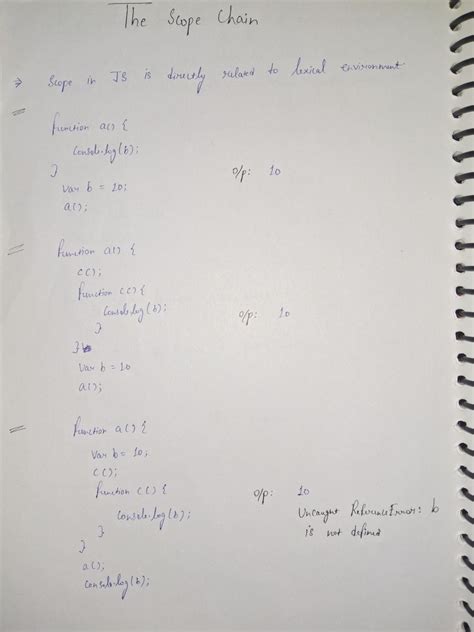 The Scope Chain
⇒ Scope in JS is directly related to lexical environment
= function a() {
console.log(b);
}
o/p: 10
var b = 10;
a();
= function a() {
c();
function c() {
console.log(b);
o/p: 10
}
}
var b = 10
a();
= function a() {
var b = 10;
c();
function c() {
o/p: 10
console.log(b);
Uncaught ReferenceError: b
is not defined
}
}
a();
console.log(b);